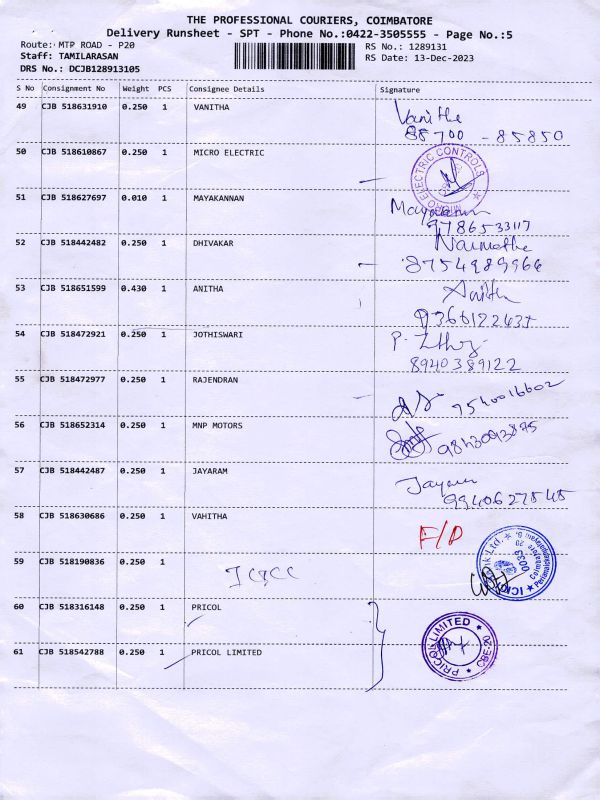 THE PROFESSIONAL COURIERS, COIMBATORE
Delivery Runsheet - SPT - Phone No.:0422-3505555 - Page No.:5
Route: MTP ROAD - P20
RS No.: 1289131
Staff: TAMILARASAN
RS Date: 13-Dec-2023
DRS No.: DCJB128913105
S No Consignment No Weight PCS Consignee Details Signature
49 CJB 518631910 0.250 1 VANITHA Vanitha
88700 - 85850
50 CJB 518610867 0.250 1 MICRO ELECTRIC
MICRO ELECTRIC CONTROLS
51 CJB 518627697 0.010 1 MAYAKANNAN Mayakannan
9786533117
52 CJB 518442482 0.250 1 DHIVAKAR
8754989966
53 CJB 518651599 0.430 1 ANITHA Anitha
9360122637
54 CJB 518472921 0.250 1 JOTHISWARI P.
8940389122
55 CJB 518472977 0.250 1 RAJENDRAN
9540016602
56 CJB 518652314 0.250 1 MNP MOTORS
9843093875
57 CJB 518442487 0.250 1 JAYARAM Jayaram
9940627545
58 CJB 518630686 0.250 1 VAHITHA F/D
59 CJB 518190836 0.250 1
ICICI Bank Ltd.
0033
60 CJB 518316148 0.250 1 PRICOL
PRICOL LIMITED
CBE-20
61 CJB 518542788 0.250 1 PRICOL LIMITED